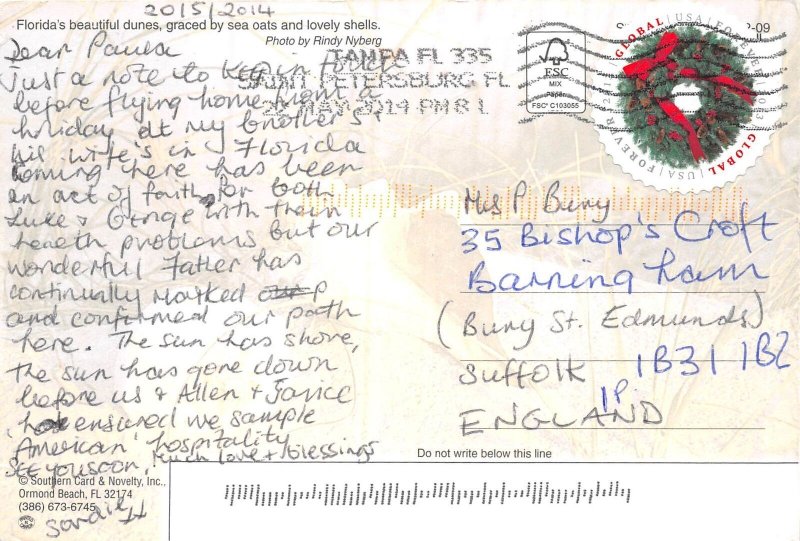 20/5/2014
Florida's beautiful dunes, graced by sea oats and lovely shells.
Photo by Rindy Nyberg
Dear Paula
Just a note to keep in
before flying home from a
holiday at my brother's
his wife's in Florida
Coming here has been
an act of faith for both
Luke & George with their
heath problems but our
wonderful Father has
continually marked
and confirmed our path
here. The sun has shone,
the sun has gone down
before us & Allen & Janice
have ensured we sample
American hospitality
See you soon. Much love + blessings
© Southern Card & Novelty, Inc.,
Ormond Beach, FL 32174
(386) 673-6745
TAMPA FL 335
SAINT PETERSBURG FL
MAY 2014 PM 8 L
FSC
MIX
Paper
FSC® C103055
GLOBAL USA FOREVER 2013
GLOBAL USA FOREVER
P-09
Mrs P Bury
35 Bishop's Croft
Barningham
(Bury St. Edmunds)
Suffolk IB31 1BZ
1P.
ENGLAND
Do not write below this line